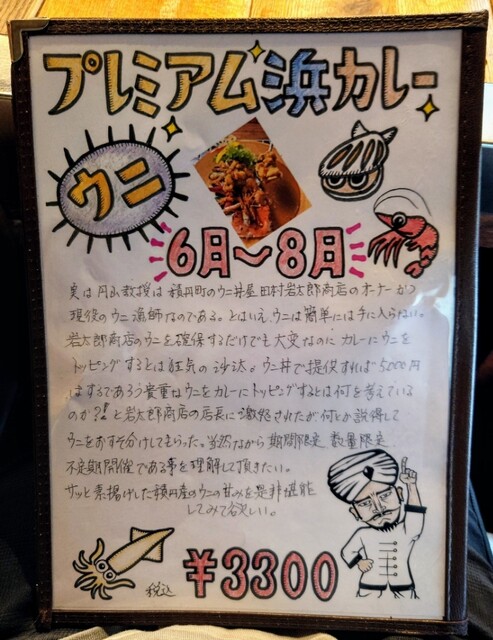 プレミアム浜カレー
ウニ
6月〜8月
実は円山教授は積丹町のウニ丼屋田村岩太郎商店のオーナーかつ
現役のウニ漁師なのである。とはいえ、ウニは簡単には手に入らない。
岩太郎商店のウニを確保するだけでも大変なのにカレーにウニを
トッピングするとは狂気の沙汰。ウニ丼で提供すれば5000円
はするであろう貴重なウニをカレーにトッピングするとは何を考えている
のか?!と岩太郎商店の店長に激怒されたが何とか説得して
ウニをおすそ分けしてもらった。当然ながら期間限定、数量限定、
不定期開催である事を理解して頂きたい。
サッと素揚げした積丹産のウニの甘みを是非堪能
してみて欲しい。
税込 ¥3300